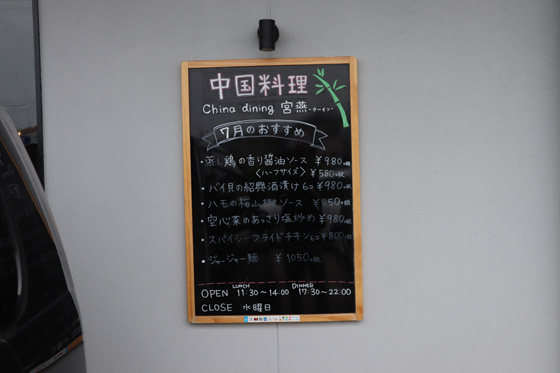 中国料理
China dining 宮燕
7月のおすすめ
・蒸し鶏の香り醤油ソース ¥980+税
〈ハーフサイズ〉 ¥580+税
・バイ貝の紹興酒漬け 6コ ¥980+税
・ハモの梅山椒ソース ¥850+税
・空心菜のあっさり塩炒め ¥980+税
・スパイシーフライドチキン 6コ ¥800+税
・ジャージャー麺 ¥1050+税
LUNCH DINNER
OPEN 11:30～14:00 17:30～22:00
CLOSE 水曜日